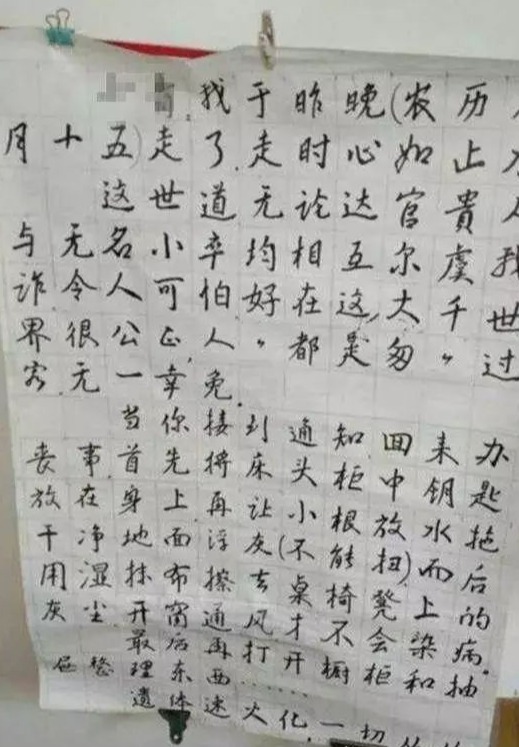 我于昨晚(农历
月十五)走了。走时心如止水
这世道无论达官贵人
与无名小卒均相互尔虞我
诈令人可怕。好在这大千世
界很公正，人〃都是匆〃过
客无一幸免。
当你接到通知回来办
丧事首先将床头柜中钥匙
放在身上再让小根放水拖
干净地面浮灰(不能扭)而后
用湿抹布擦去桌椅凳上的
灰尘开窗通风才不会染病。
最后再打开橱柜和抽
屉整理东西……
遗体速火化，一切